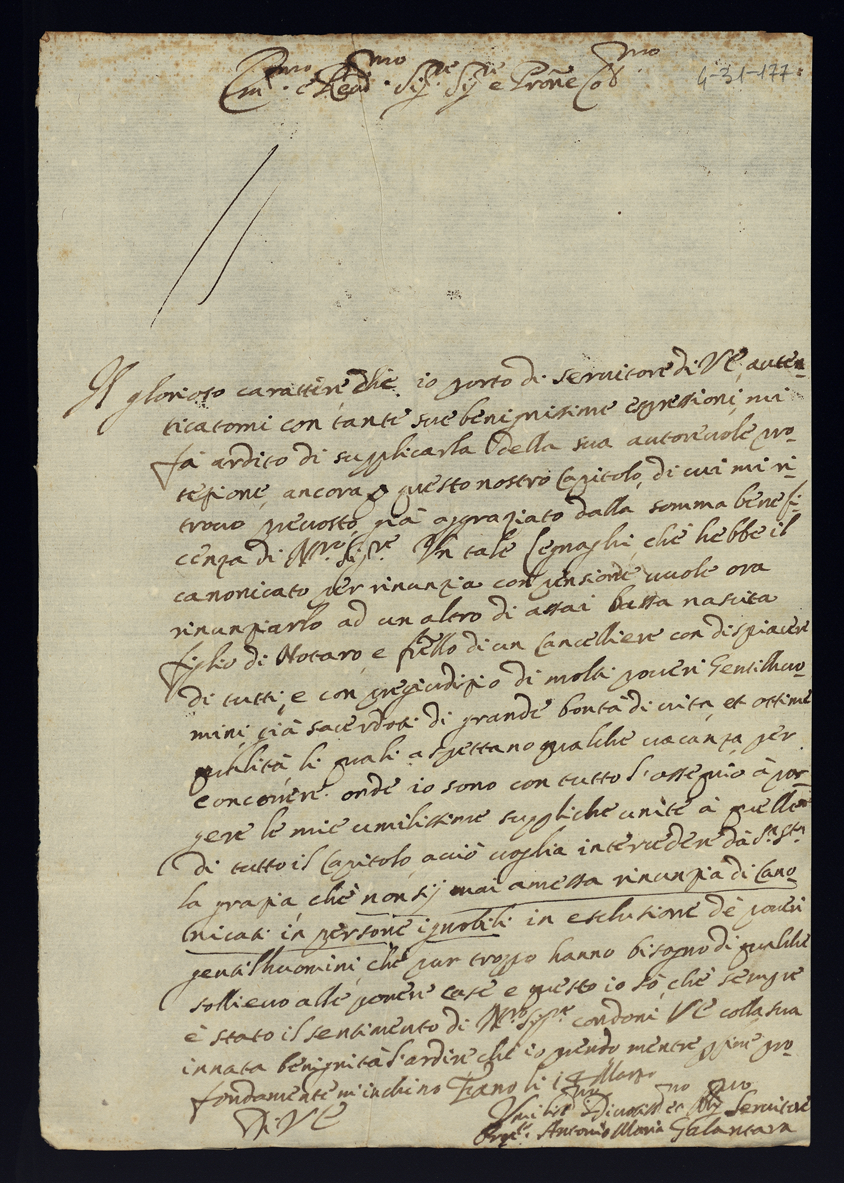 Em.mo e Re.mo Sig.re Sig.re e Prōne Co.mo
4-31-177
Il glorioso carattere che io porto di servitore di VE, auten
ticatomi con tante sue benignissime espressioni, mi
fà ardito di supplicarla della sua autorevole pro-
tezione, ancora p questo nostro Capitolo, di cui mi ri-
trovo prevosto già aggraziato dalla somma benefi-
cenza di N.ro Sig.re Un tale che hebbe il
canonicato per rinunzia con pensione vuole ora
rinunziarlo ad un altro di assai bassa nascita
figlio di Notaro, e fr̃ello di un Cancelliere con dispiacere
di tutti, e con pregiudizio di molti poveri Gentilhuo-
mini, già sacerdoti di grande bontà di vita, et ottime
qualità li quali aspettano qualche vacanza per
concorrere. onde io sono con tutto l'ossequio à por-
gere le mie umilissime suppliche unite à quelle
di tutto il Capitolo, acciò voglia intercedere dà S.a S.tà
la grazia, che non sij mai amessa rinunzia di Cano-
nicati in persone ignobili in esclusione de poveri
gentilhuomini, che pur troppo hanno bisogno di qualche
sollievo alle povere case e questo io sò, che sempre
è stato il sentimento di N.ro Sig.re condoni VE colla sua
innata benignità l'ardire che io prendo mentre p fine pro-
fondamente m'inchino Fano li 14 Marzo
Di VE
Umiliss.mo Divotiss.mo et Obl.mo Servitore
Antonio Maria Galantara